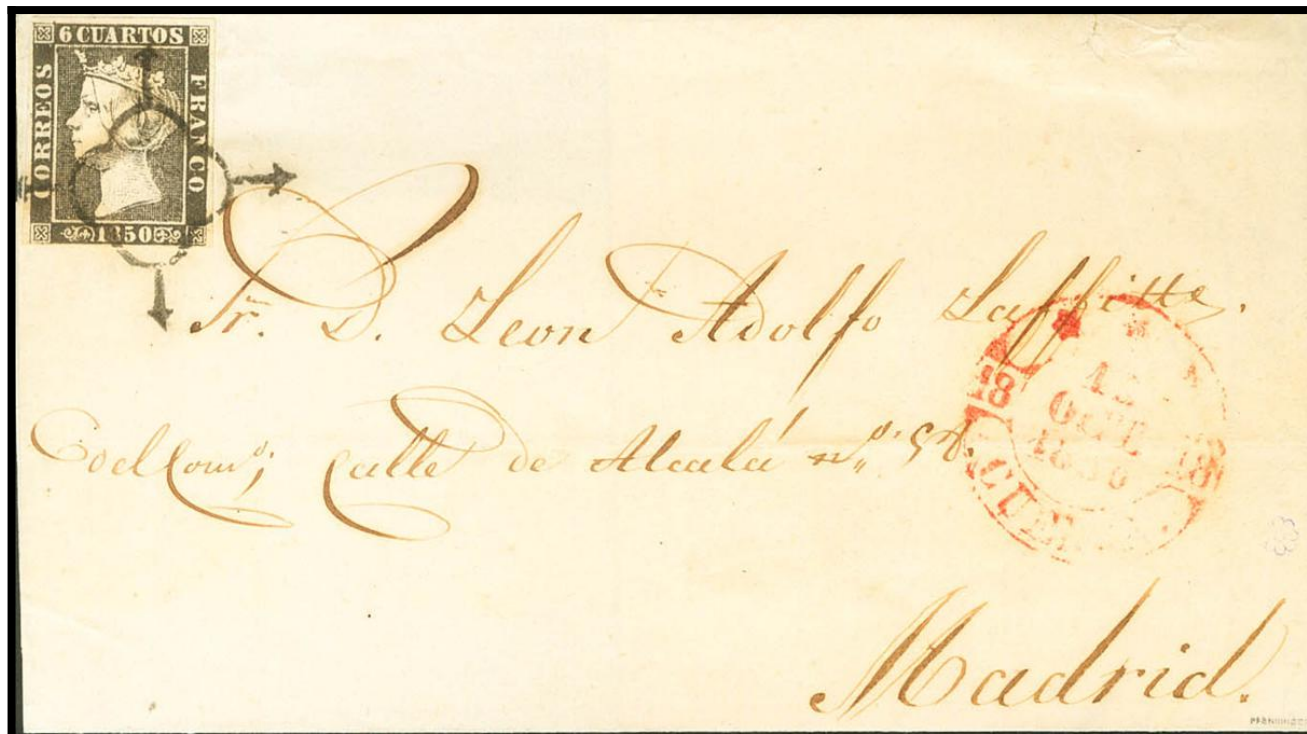 6 CUARTOS
CORREOS
FRANCO
1850
Sr. D. Leon Adolfo Laffitte.
Calle de Alcalá nº
18
OCT
1850
18
Madrid.